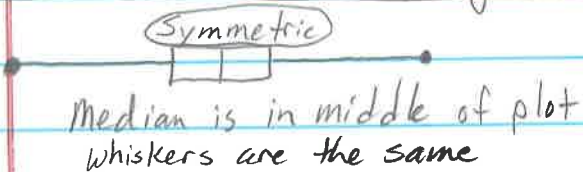 Symmetric
Median is in middle of plot
Whiskers are the same